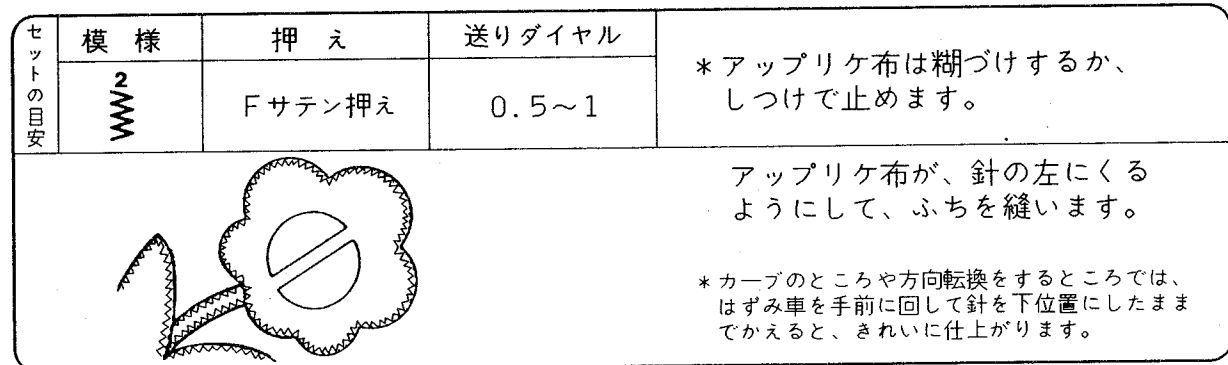 セットの目安
模様
押え
送りダイヤル
2
Fサテン押え
0.5〜1
*アップリケ布は糊づけするか、
しつけで止めます。
アップリケ布が、針の左にくる
ようにして、ふちを縫います。
*カーブのところや方向転換をするところでは、
はずみ車を手前に回して針を下位置にしたまま
でかえると、きれいに仕上がります。